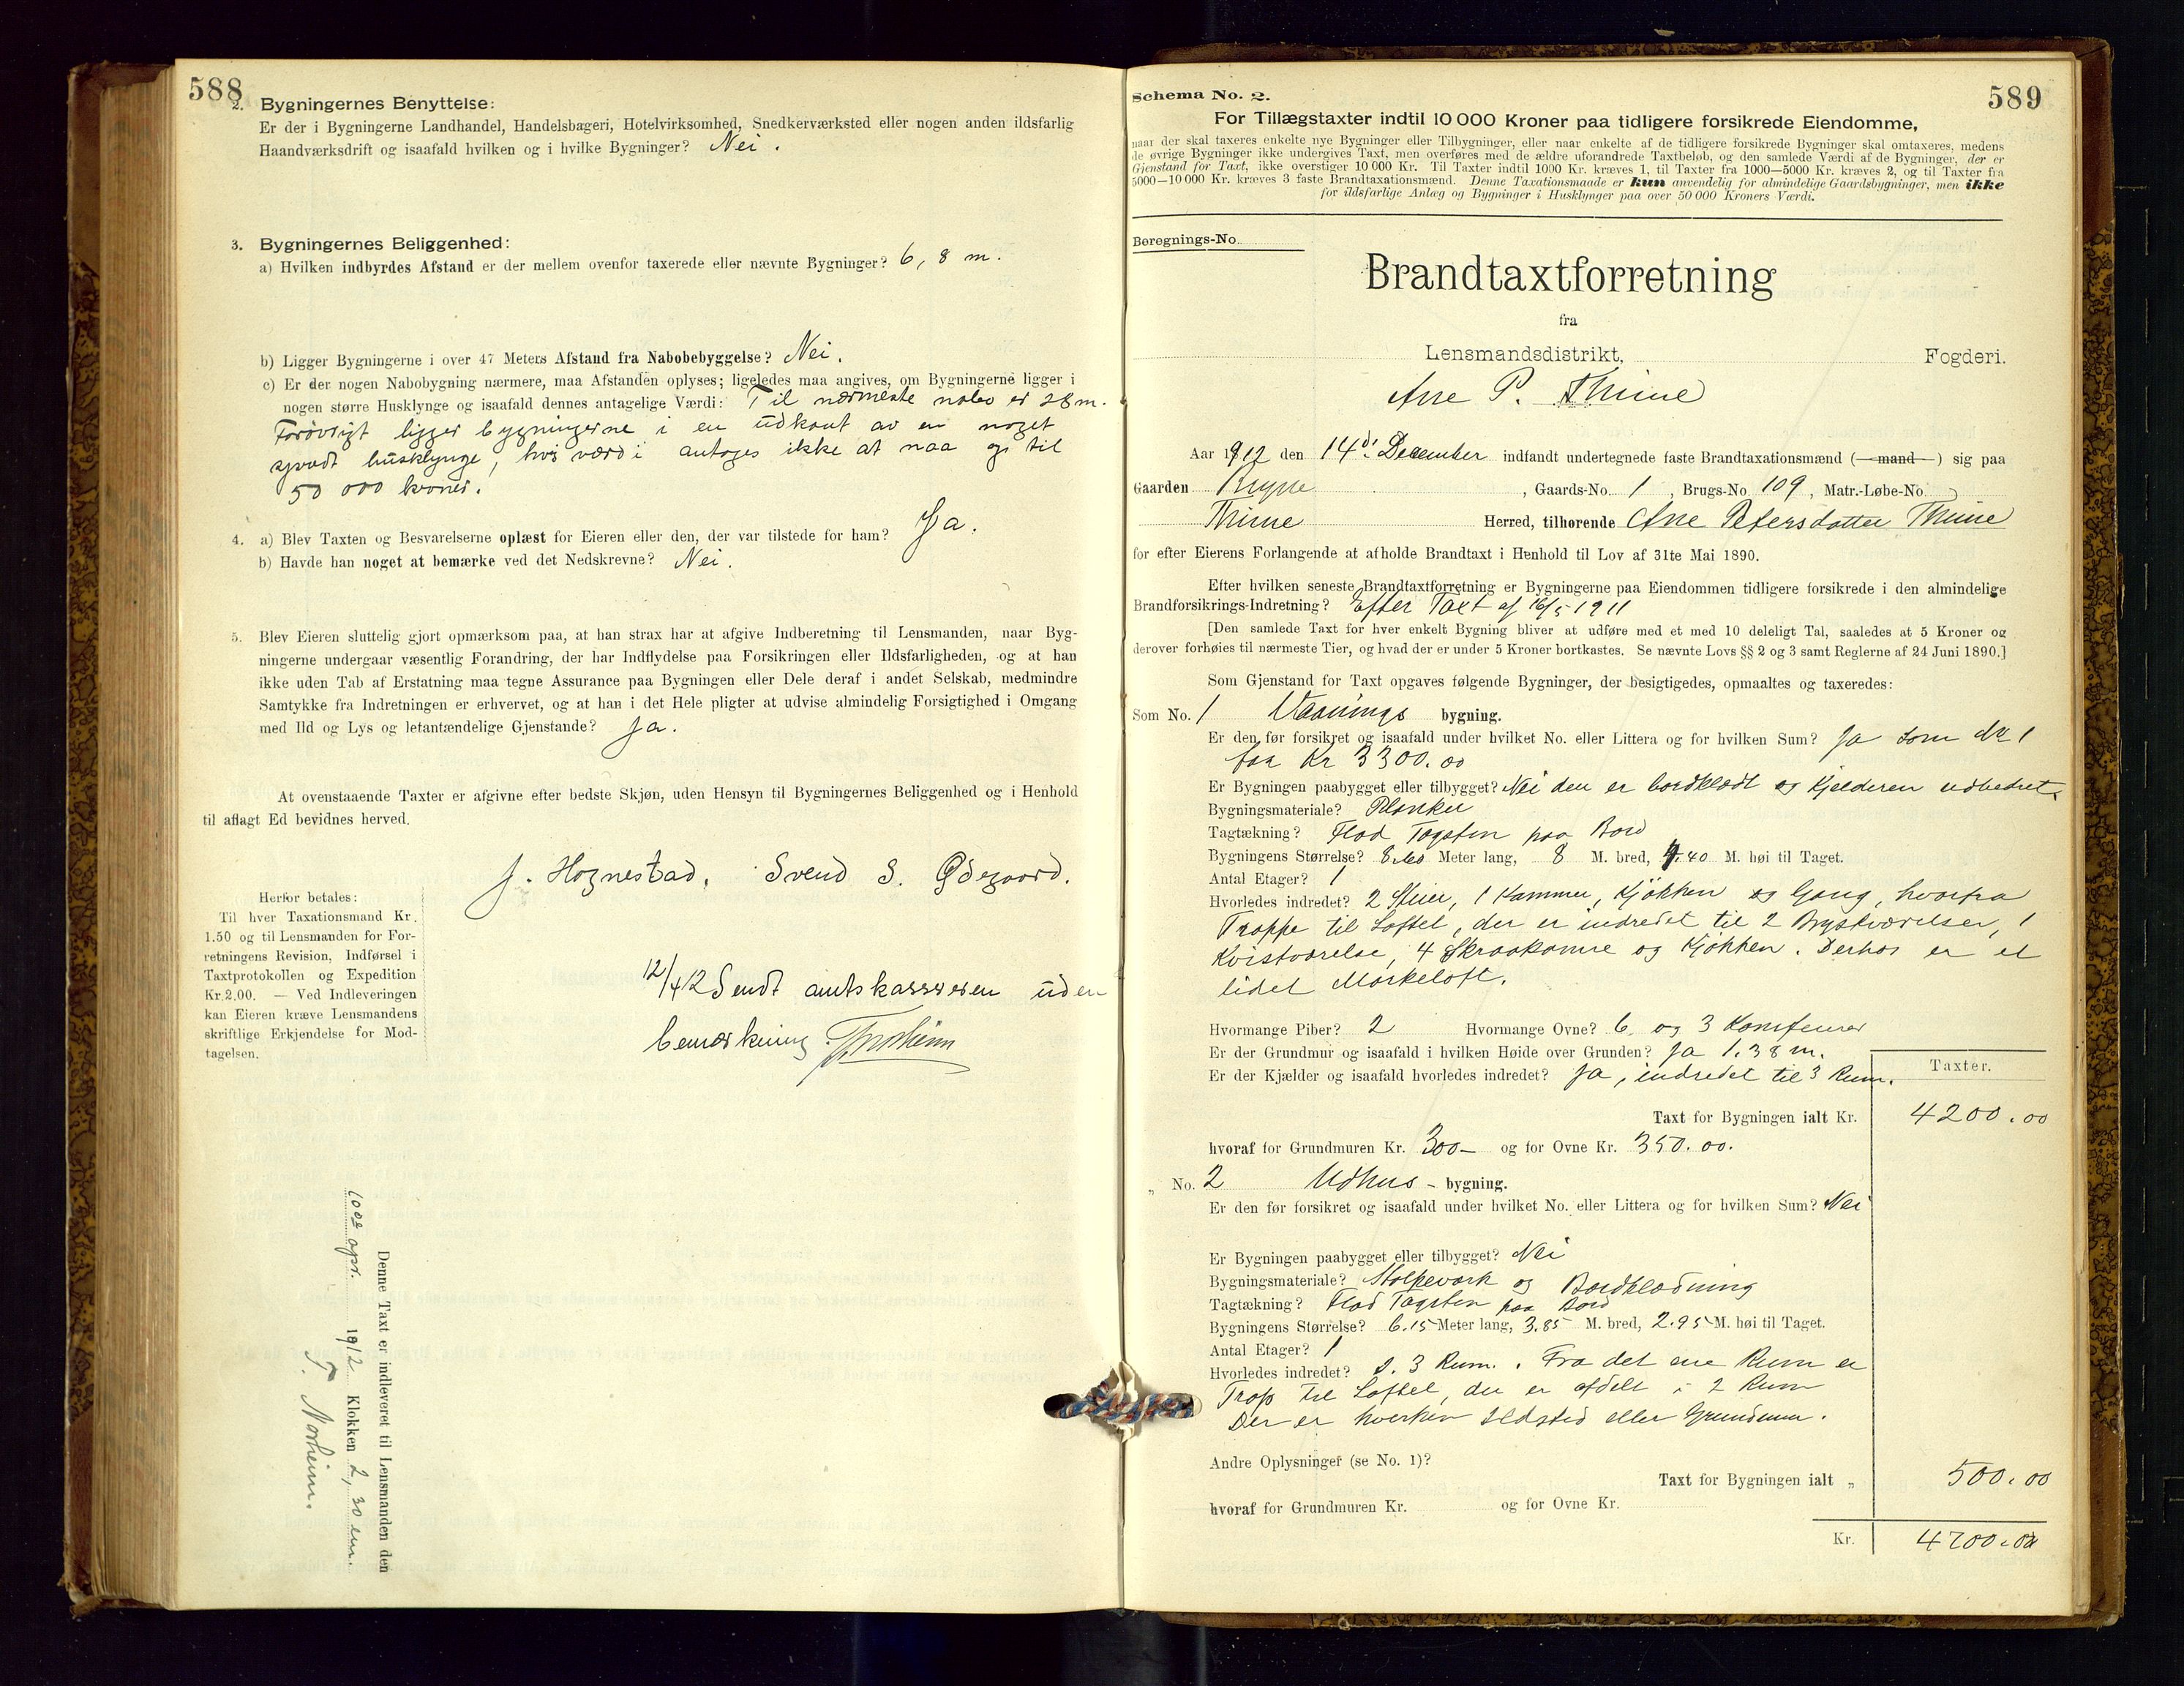 588
2. Bygningernes Benyttelse:
Er der i Bygningerne Landhandel, Handelsbageri, Hotelvirksomhed, Snedkerværksted eller nogen anden ildsfarlig
Haandværksdrift og isaafald hvilken og i hvilke Bygninger? Nei.
3. Bygningernes Beliggenhed:
a) Hvilken indbyrdes Afstand er der mellem ovenfor taxerede eller nævnte Bygninger? 6,8 m.
b) Ligger Bygningerne i over 47 Meters Afstand fra Nabobebyggelse? Nei.
c) Er der nogen Nabobygning nærmere, maa Afstanden oplyses; ligeledes maa angives, om Bygningerne ligger i
nogen større Husklynge og isaafald dennes antagelige Værdi: Til nærmeste nabo er 28 m.
Forøvrigt ligger bygningerne i en udkant av en noget
spredt husklynge, hvis værdi antages ikke at naa op til
50 000 kroner.
4. a) Blev Taxten og Besvarelserne oplæst for Eieren eller den, der var tilstede for ham? Ja.
b) Havde han noget at bemærke ved det Nedskrevne? Nei.
5. Blev Eieren sluttelig gjort opmærksom paa, at han strax har at afgive Indberetning til Lensmanden, naar Byg-
ningerne undergaar væsentlig Forandring, der har Indflydelse paa Forsikringen eller Ildsfarligheden, og at han
ikke uden Tab af Erstatning maa tegne Assurance paa Bygningen eller Dele deraf i andet Selskab, medmindre
Samtykke fra Indretningen er erhvervet, og at han i det Hele pligter at udvise almindelig Forsigtighed i Omgang
med Ild og Lys og letantændelige Gjenstande? Ja.
At ovenstaaende Taxter er afgivne efter bedste Skjøn, uden Hensyn til Bygningernes Beliggenhed og i Henhold
til aflagt Ed bevidnes herved.
J. Hognestad. Svend S. Ødegaard.
Herfor betales:
Til hver Taxationsmand Kr.
1.50 og til Lensmanden for For-
retningens Revision, Indførsel i
Taxtprotokollen og Expedition
Kr. 2.00. — Ved Indleveringen
kan Eieren kræve Lensmandens
skriftlige Erkjendelse for Mod-
tagelsen.
12/4 12 Sendt amtskassereren uden
bemærkning
Denne Taxt er indleveret til Lensmanden den
10de apr. 1912 Klokken 2,30 em.
T. Norheim.
Schema No. 2.
589
For Tillægstaxter indtil 10 000 Kroner paa tidligere forsikrede Eiendomme,
naar der skal taxeres enkelte nye Bygninger eller Tilbygninger, eller naar enkelte af de tidligere forsikrede Bygninger skal omtaxeres, medens
de øvrige Bygninger ikke undergives Taxt, men overføres med de ældre uforandrede Taxtbeløb, og den samlede Værdi af de Bygninger, der er
Gjenstand for Taxt, ikke overstiger 10 000 Kr. Til Taxter indtil 1000 Kr. kræves 1, til Taxter fra 1000—5000 Kr. kræves 2, og til Taxter fra
5000—10 000 Kr. kræves 3 faste Brandtaxationsmænd. Denne Taxationsmaade er kun anvendelig for almindelige Gaardsbygninger, men ikke
for ildsfarlige Anlæg og Bygninger i Husklynger paa over 50 000 Kroners Værdi.
Beregnings-No.
Brandtaxtforretning
fra
Lensmandsdistrikt, Fogderi.
Ane P. Thime
Aar 1912 den 14d. December indfandt undertegnede faste Brandtaxationsmænd (mand) sig paa
Gaarden Bryne, Gaards-No. 1, Brugs-No. 109, Matr.-Løbe-No.
Thime Herred, tilhørende Ane Petersdatter Thime
for efter Eierens Forlangende at afholde Brandtaxt i Henhold til Lov af 31te Mai 1890.
Efter hvilken seneste Brandtaxtforretning er Bygningerne paa Eiendommen tidligere forsikrede i den almindelige
Brandforsikrings-Indretning? Efter Taxt af 16/5 1911
[Den samlede Taxt for hver enkelt Bygning bliver at udføre med et med 10 deleligt Tal, saaledes at 5 Kroner og
derover forhøies til nærmeste Tier, og hvad der er under 5 Kroner bortkastes. Se nævnte Lovs §§ 2 og 3 samt Reglerne af 24 Juni 1890.]
Som Gjenstand for Taxt opgaves følgende Bygninger, der besigtigedes, opmaaltes og taxeredes:
Som No. 1 Vaanings bygning.
Er den før forsikret og isaafald under hvilket No. eller Littera og for hvilken Sum? Ja som No 1
for Kr 3300.00
Er Bygningen paabygget eller tilbygget? Nei den er bordklædt og Kjelderen udbedret
Bygningsmateriale? Planker
Tagtækning? Flad Tagsten paa Bord
Bygningens Størrelse? 8.60 Meter lang, 8 M. bred, 4.40 M. høi til Taget.
Antal Etager? 1
Hvorledes indredet? 2 Stuer, 1 Kammer, Kjøkken og Gang, hvorfra
Trappe til Loftet, der er indredet til 2 Brystværelser, 1
Kvistværelse, 4 Skraakamre og Kjøkken. Derhos er et
lidet Mørkeloft.
Hvormange Piber? 2 Hvormange Ovne? 6 og 3 Komfeurer
Er der Grundmur og isaafald i hvilken Høide over Grunden? Ja 1.38 m.
Er der Kjælder og isaafald hvorledes indredet? Ja, indredet til 3 Rum.
Taxter.
Taxt for Bygningen ialt Kr. 4200.00
hvoraf for Grundmuren Kr. 300- og for Ovne Kr. 350.00.
" No. 2 Udhus - bygning.
Er den før forsikret og isaafald under hvilket No. eller Littera og for hvilken Sum? Nei
Er Bygningen paabygget eller tilbygget? Nei
Bygningsmateriale? Stolpeværk og Bordklædning
Tagtækning? Flad Tagsten paa Bord
Bygningens Størrelse? 6.15 Meter lang, 3.85 M. bred, 2.95 M. høi til Taget.
Antal Etager? 1
Hvorledes indredet? 3 Rum. Fra det ene Rum er
Trap til Loftet, der er afdelt i 2 Rum
Der er hverken Ildsted eller Grundmur.
Andre Oplysninger (se No. 1)?
Taxt for Bygningen ialt " 500.00
hvoraf for Grundmuren Kr. og for Ovne Kr.
Kr. 4700.00